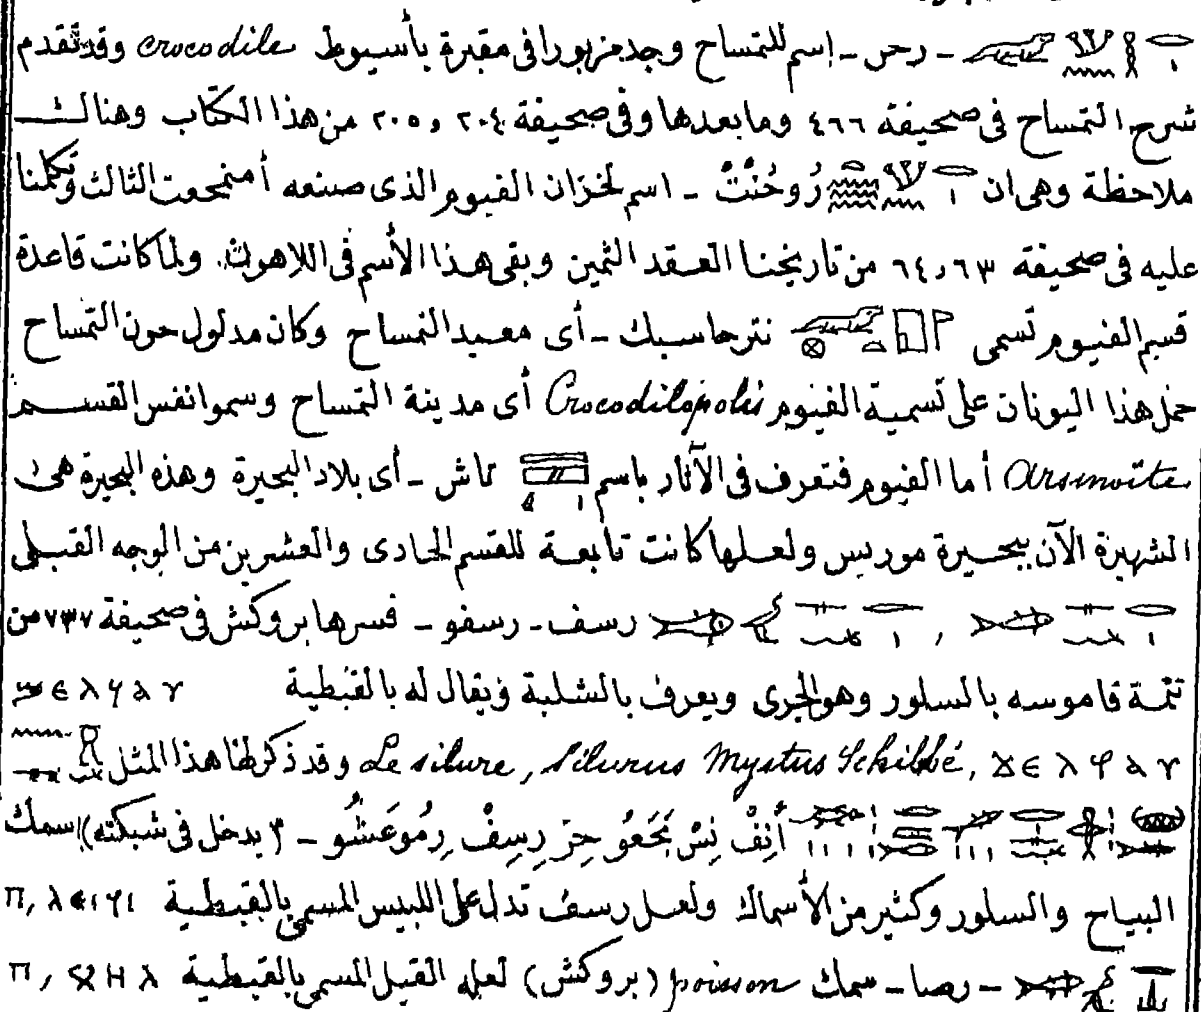 - رحر - إسم للتمساح وجد مزبورا فى مقبرة بأسيوط crocodile وقد تقدم
شرح التمساح فى صحيفة ٤٦٦ وما بعدها وفى صحيفة ٢٠٤ و ٢٠٥ من هذا الكتاب وهنالك
ملاحظة وهى ان رُوحُنْتْ - اسم لخزان الفيوم الذى صنعه أمنمحعت الثالث وتكلمنا
عليه فى صحيفة ٦٣ و ٦٤ من تاريخنا العقد الثمين وبقى هذا الأسم فى اللاهون. ولما كانت قاعدة
قسم الفيوم تسمى نترحاسبك - أى معبد التمساح وكان مدلول حون التمساح
حمل هذا اليونان على تسمية الفيوم Crocodilopolis أى مدينة التمساح وسموا نفس القسم
Arsinoïte أما الفيوم فتعرف فى الآثار باسم تاش - أى بلاد البحيرة وهذه البحيرة هى
الشهيرة الآن ببحيرة موريس ولعلها كانت تابعة للقسم الحادى والعشرين من الوجه القبلى
رسف - رسفو - فسرها بروكش فى صحيفة ٧٣٧ من
تتمة قاموسه بالسلور وهو الجرى ويعرف بالشلبة ويقال له بالقبطية
Le silure, Silurus Mystus Schilbé, وقد ذكر لنا هذا المثل
أَنِفْ نِسْ بَحَعُو حِرْ رِسِفْ رِمُوعَشُو - ٣ يدخل فى شبكته) سمك
البياح والسلور وكثير من الأسماك ولعل رسف تدل على اللبيس المسمى بالقبطية
- رصا - سمك poisson (بروكش) لعله القيل المسمى بالقبطية